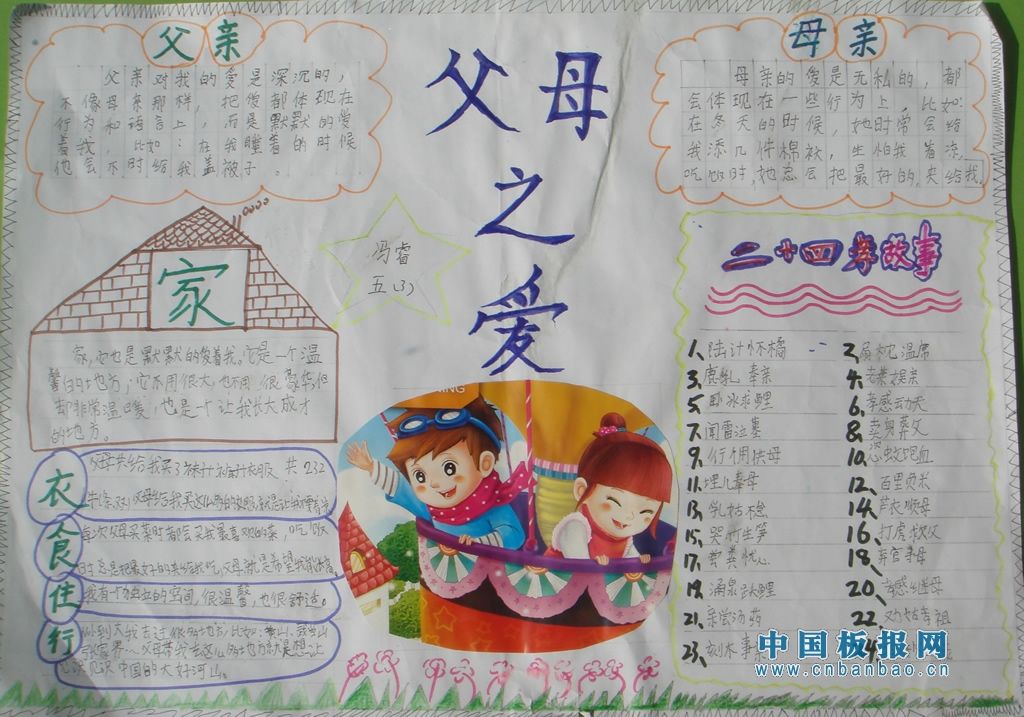 父亲
父亲对我的爱是深沉的,
不像母亲那样,把爱都体现在
行为和语言上,而是默默的爱
着我,比如:在我睡着的时候
他会不时给我盖被子。
父母
之
爱
母亲
母亲的爱是无私的,都
会体现在一些行为上,比如:
在冬天的时候,她时常会给
我添几件棉袄,生怕我着凉,
吃饭时,她总会把最好的,夹给我。
冯睿
五(3)
家
家,它也是默默的爱着我。它是一个温
馨的地方,它不用很大,也不用很豪华,但
却非常温暖,也是一个让我长大成才
的地方。
衣
父母共给我买了
衣服 共232
食
每次父母买菜时都会买我最喜欢的菜,吃饭
时总是把最好的夹给我吃,父母就是希望我
住
我有一个独立的空间,很温馨,也很舒适。
行
从小到大我去过很多地方比如:黄山、
张家界…父母带我去这么多地方就是想让
我见识见识中国的大好河山。
二十四孝故事
1、陆计怀橘
2、扇枕温席
3、鹿乳奉亲
4、老莱娱亲
5、卧冰求鲤
6、孝感动天
7、闻雷泣墓
8、卖身葬父
9、行佣供母
10、恣蚊饱血
11、埋儿奉母
12、百里负米
13、
14、芦衣顺母
15、哭竹生笋
16、打虎救父
17、尝粪忧心
18、弃官寻母
19、涌泉跃鲤
20、
21、亲尝汤药
22、乳姑孝祖
23、刻木事亲
中国板报网
www.cnbanbao.cn